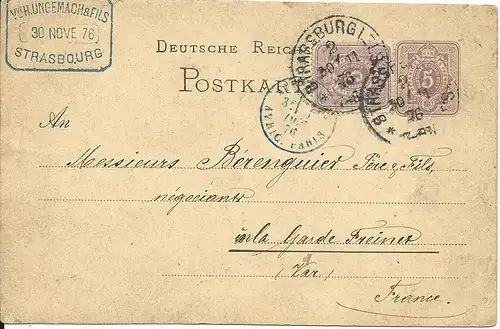 Vve H. UNGEMACH & FILS
30 NOVE 76
STRASBOURG
DEUTSCHE REICH
POSTKAR
STRASBURG I. ELS
30 11
76
5
PARIS
76
An
Messieurs Bérenguier Père & Fils,
négociants
à la Garde Freinet
(Var)
France.